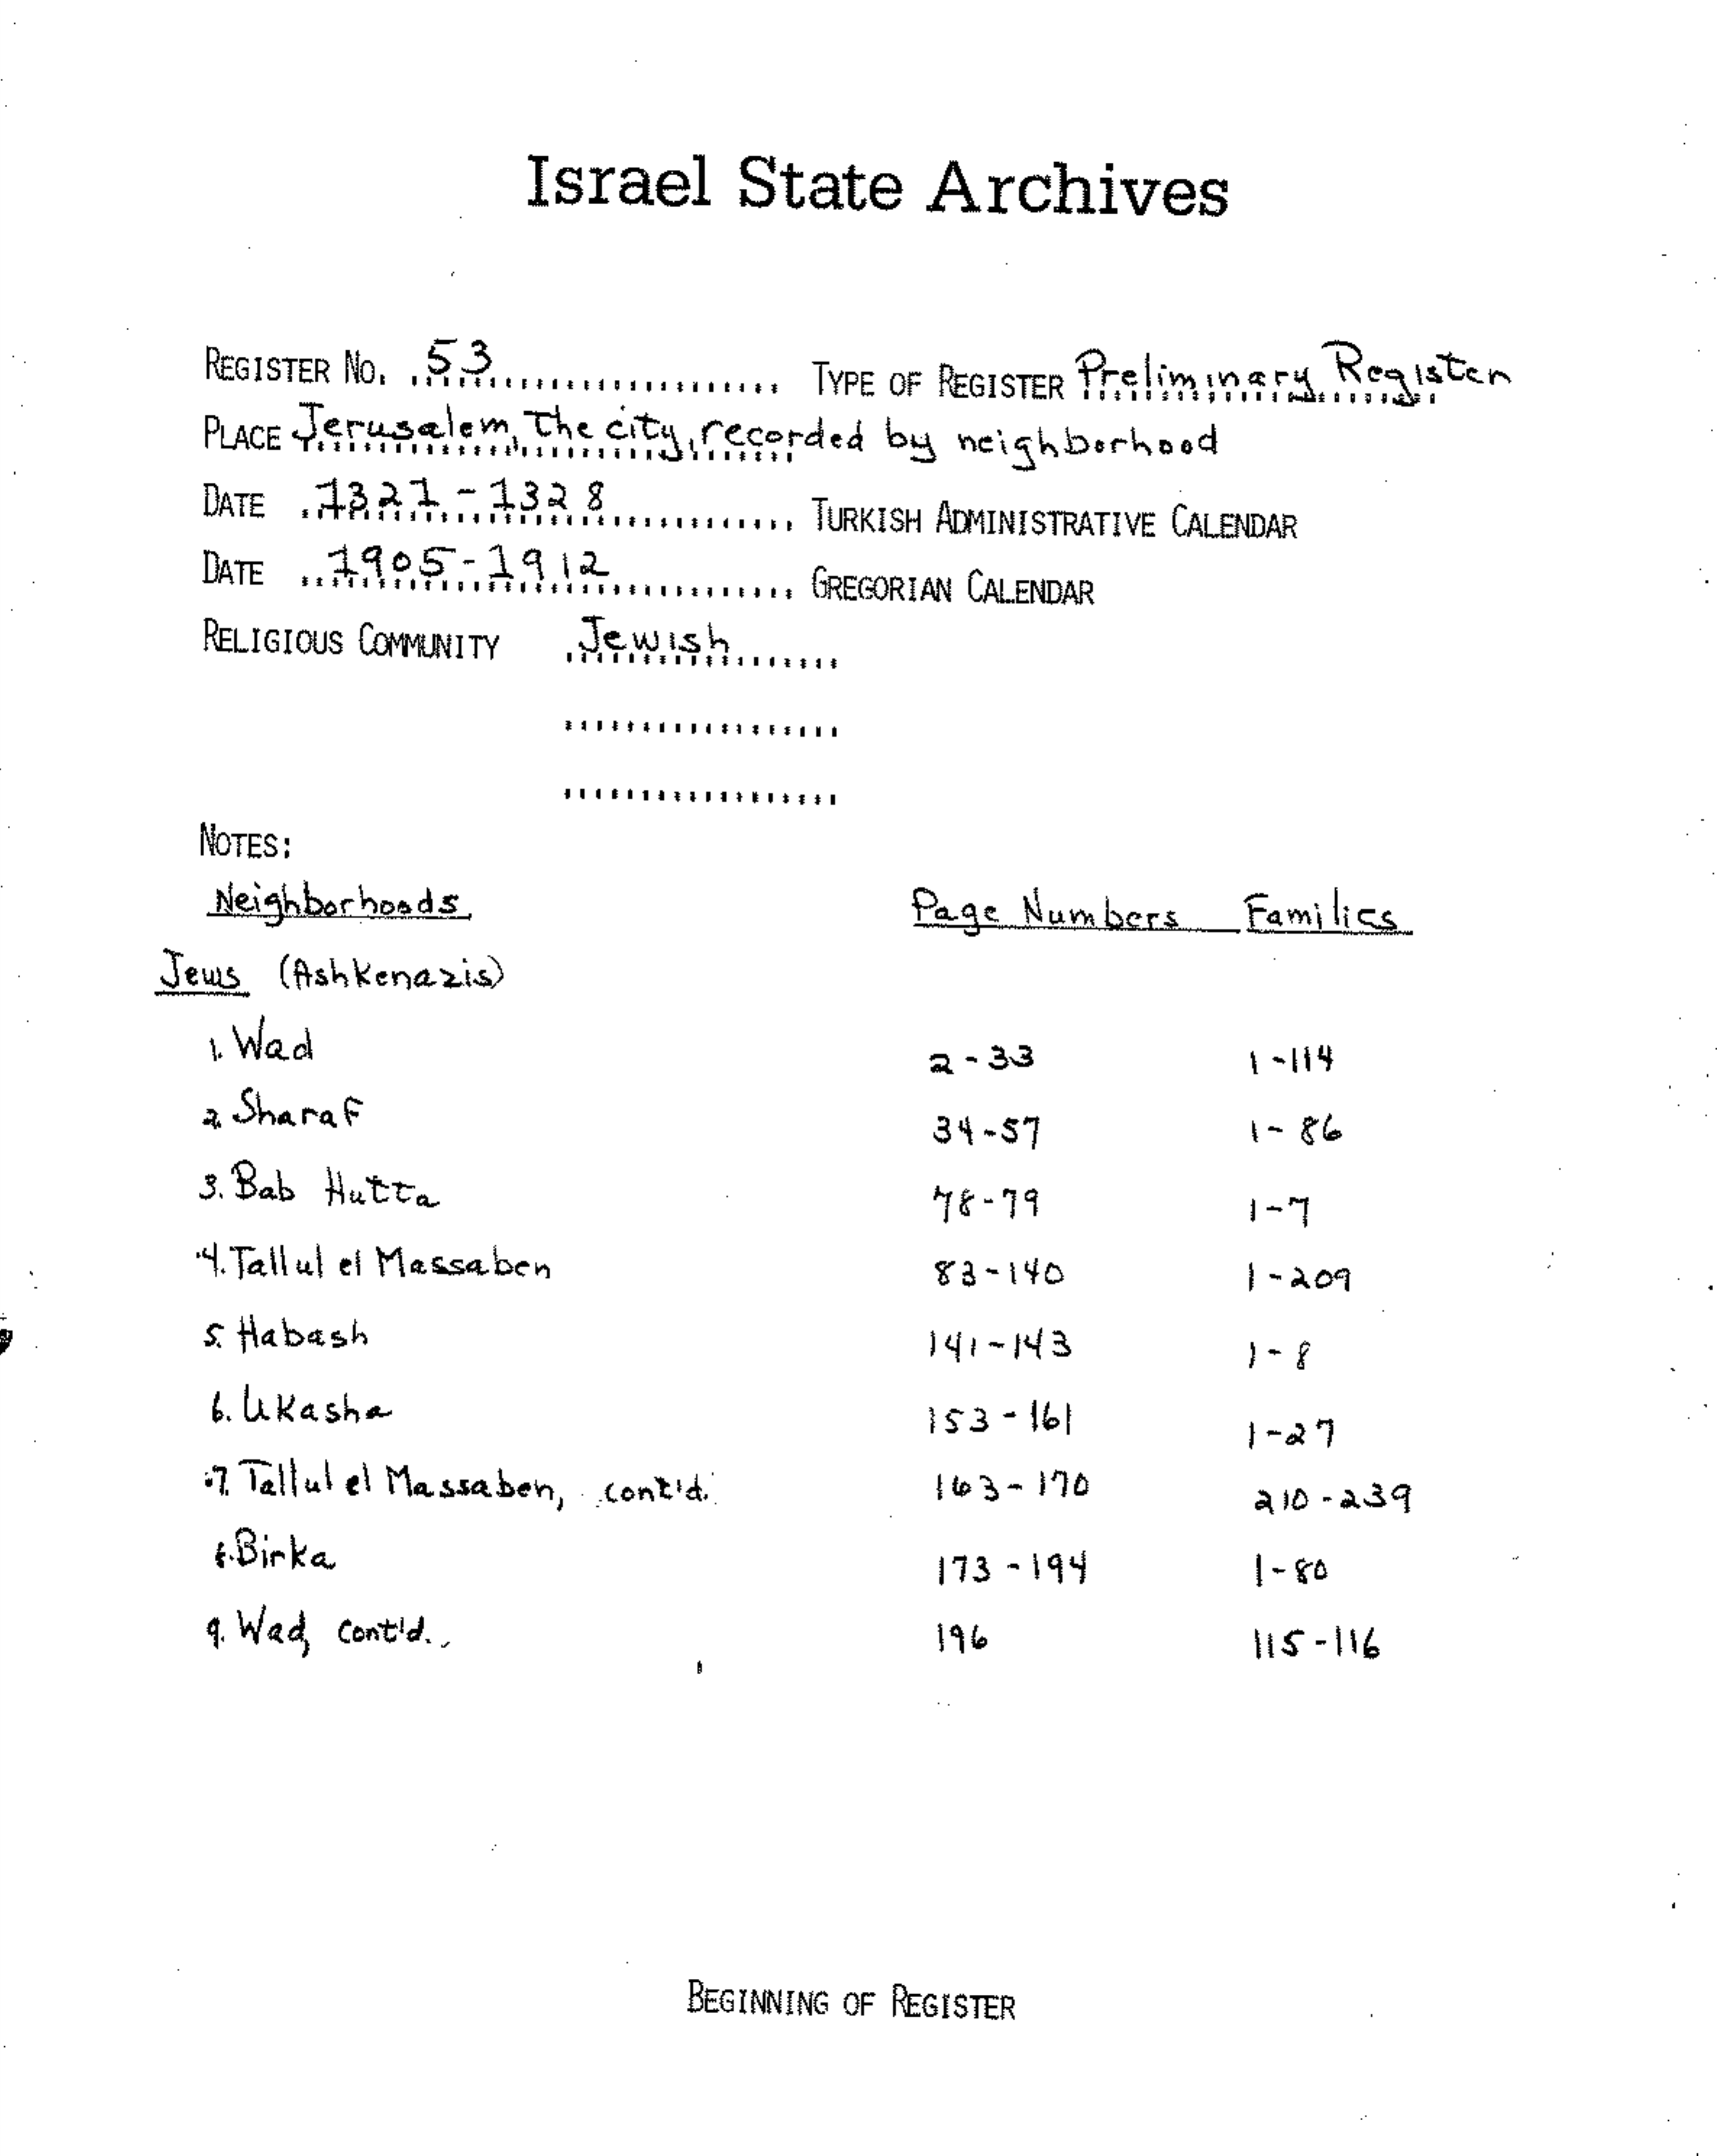 Israel State Archives
REGISTER NO. 53 TYPE OF REGISTER Preliminary Register
PLACE Jerusalem, The city, recorded by neighborhood
DATE 1321 - 1328 TURKISH ADMINISTRATIVE CALENDAR
DATE 1905 - 1912 GREGORIAN CALENDAR
RELIGIOUS COMMUNITY Jewish
NOTES:
Neighborhoods Page Numbers Families
Jews (Ashkenazis)
1. Wad 2 - 33 1 - 114
2. Sharaf 34 - 57 1 - 86
3. Bab Hutta 78 - 79 1 - 7
4. Tallul el Massaben 83 - 140 1 - 209
5. Habash 141 - 143 1 - 8
6. Ukasha 153 - 161 1 - 27
7. Tallul el Massaben, cont'd. 163 - 170 210 - 239
8. Birka 173 - 194 1 - 80
9. Wad, cont'd. 196 115 - 116
BEGINNING OF REGISTER